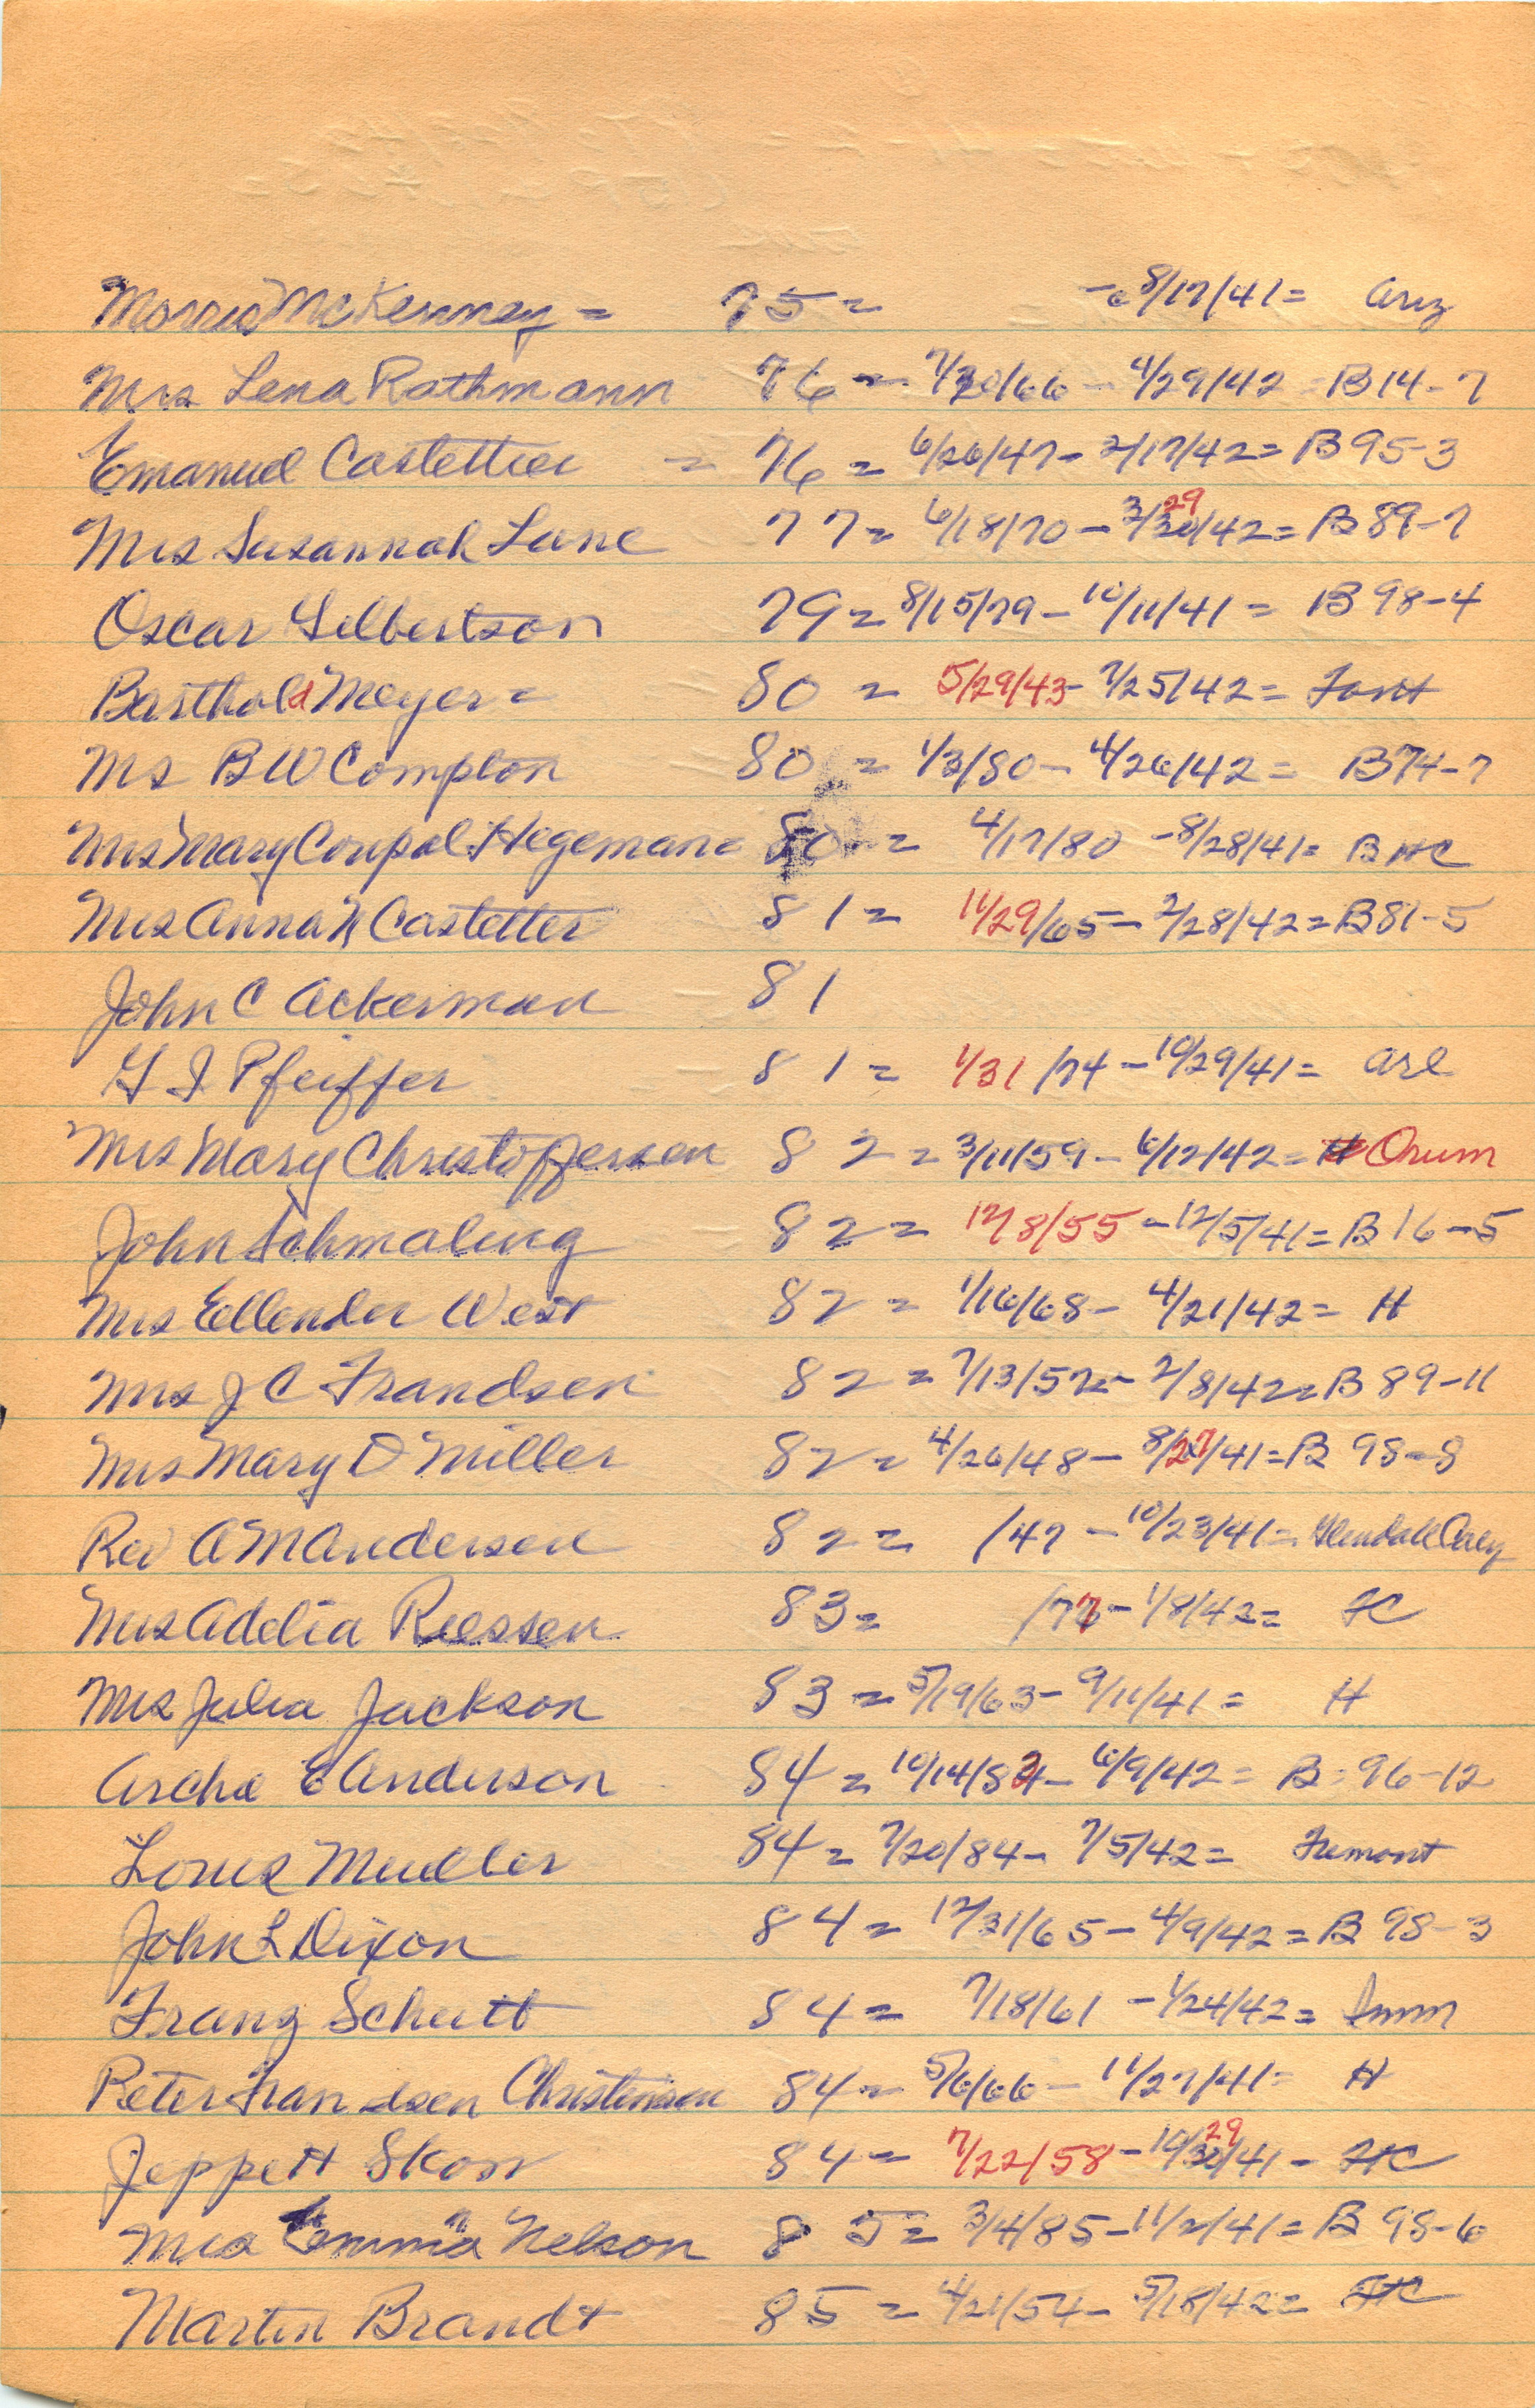 Morris McKenney = 75 = - 8/17/41 = Ariz
Mrs Lena Rathmann 76 = 7/30/66 - 4/29/42 = B 14-7
Emanuel Castetter = 76 = 6/26/47 - 2/17/42 = B 95-3
Mrs Susannah Lane 77 = 6/18/70 - 3/30/42 = B 89-7
29
Oscar Gilbertson 79 = 8/15/79 - 10/11/41 = B 98-4
Barthold Meyer = 80 = 5/29/43 - 7/25/42 =
Ms B W Compton 80 = 1/3/80 - 4/26/42 = B 74-7
Mrs Mary Coupal Hegeman = 80 = 4/17/80 - 8/28/41 = B HC
Mrs Anna N Castetter 81 = 11/29/65 - 2/28/42 = B 81-5
John C Ackerman - 81
G I Pfeiffer - 81 = 1/31/74 - 10/29/41 = Arl
Mrs Mary Christoffersen 82 = 3/11/59 - 6/12/42 = H Orum
John Schmaling 82 = 12/8/55 - 12/5/41 = B 16-5
Mrs Ellender West 82 = 1/16/68 - 4/21/42 = H
Mrs J C Frandsen 82 = 7/13/57 - 2/8/42 = B 89-11
Mrs Mary D Miller 82 = 4/26/48 - 8/27/41 = B 98-8
Rev A M Andersen 82 = /47 - 10/23/41 = Glendale
Mrs Adelia Riessen 83 = /77 - 1/8/42 = FC
Mrs Julia Jackson 83 = 5/19/63 - 9/11/41 = H
Archa E Anderson 84 = 10/14/82 - 6/9/42 = B 96-12
Louis Mueller 84 = 7/20/84 - 7/5/42 = Fremont
John L Dixon 84 = 12/31/65 - 4/9/42 = B 98-3
Franz Schutt 84 = 7/18/61 - 1/24/42 =
Peter Frandsen Christensen 84 = 5/6/66 - 11/27/41 = H
Jeppe H Skov 84 = 7/22/58 - 10/30/41 - FC
29
Mrs Emma Nelson 85 = 3/4/85 - 11/2/41 = B 98-6
Martin Brandt 85 = 4/21/54 - 5/18/42 = FC